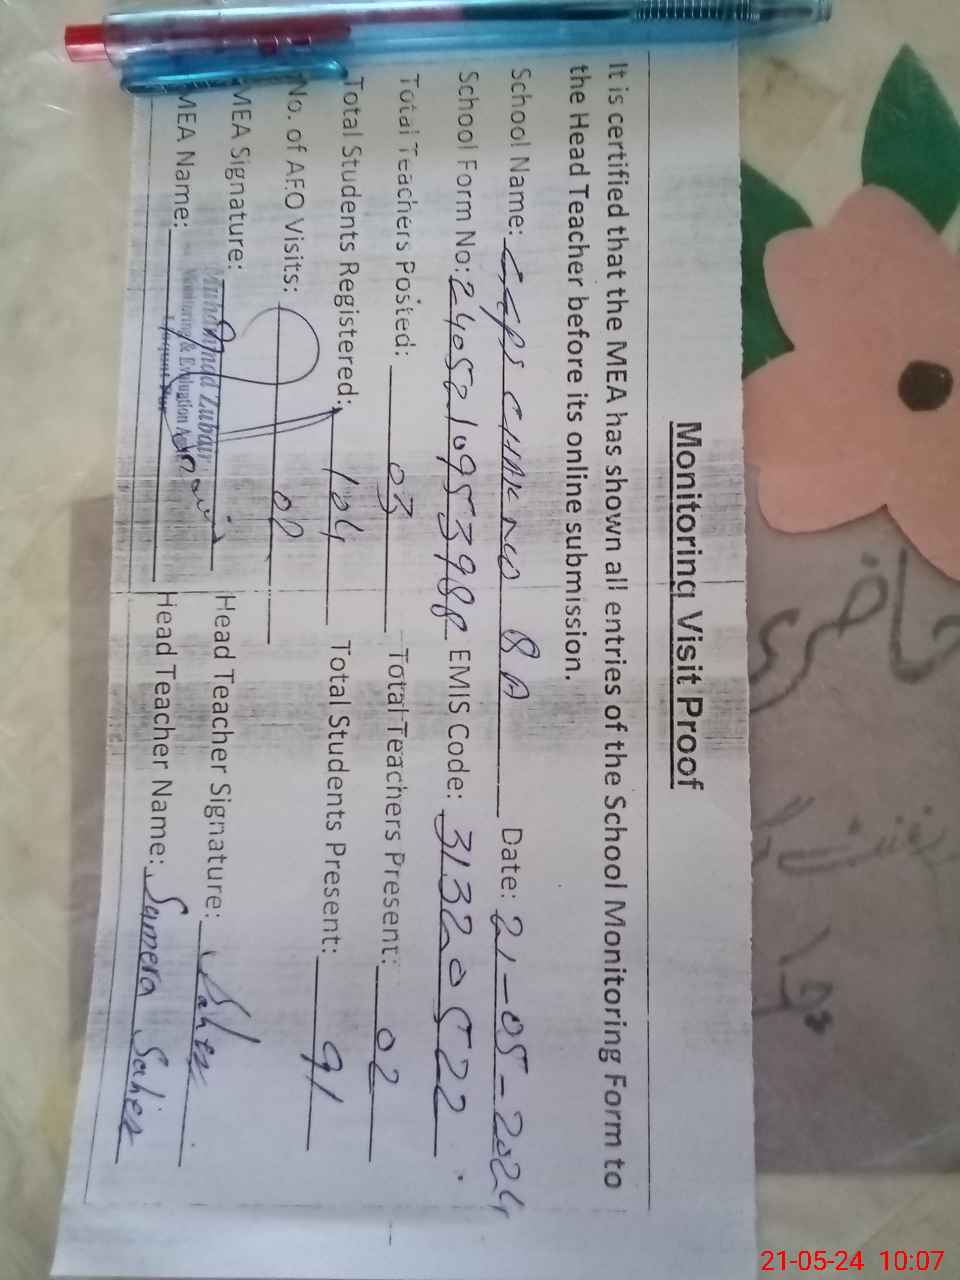 Monitoring Visit Proof
It is certified that the MEA has shown all entries of the School Monitoring Form to
the Head Teacher before its online submission.
School Name: GGPS CHAK NO 8 A Date: 21-05-2024
School Form No: 2405210953988 EMIS Code: 31320522
Total Teachers Posted: 03 Total Teachers Present: 02
Total Students Registered: 104 Total Students Present: 91
No. of AEO Visits: 02
MEA Signature: Head Teacher Signature: Saher
Muhammad Zubair
Monitoring & Evaluation
MEA Name: Head Teacher Name: Samera Saher
21-05-24 10:07